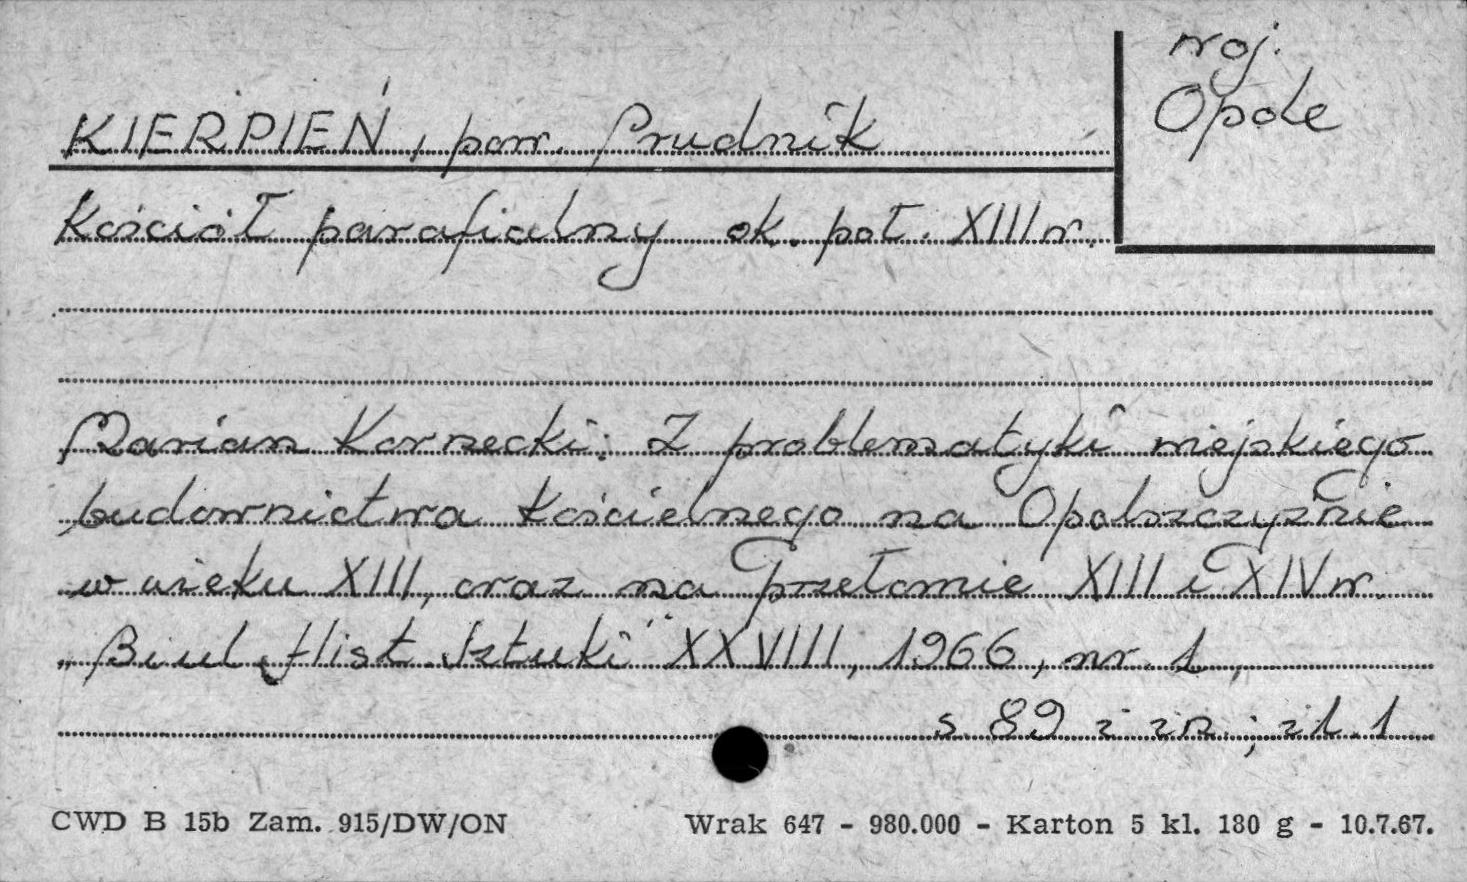 woj.
Opole
KIERPIEŃ, pow. Prudnik
Kościół parafialny ok. poł. XIII w.
Marian Kornecki: Z problematyki miejskiego
budownictwa kościelnego na Opolszczyźnie
w wieku XIII, oraz na przełomie XIII i XIV w.
„Biul. Hist. Sztuki" XXVIII, 1966, nr. 1,
s. 89 i in.; il. 1
CWD B 15b Zam. 915/DW/ON Wrak 647 - 980.000 - Karton 5 kl. 180 g - 10.7.67.